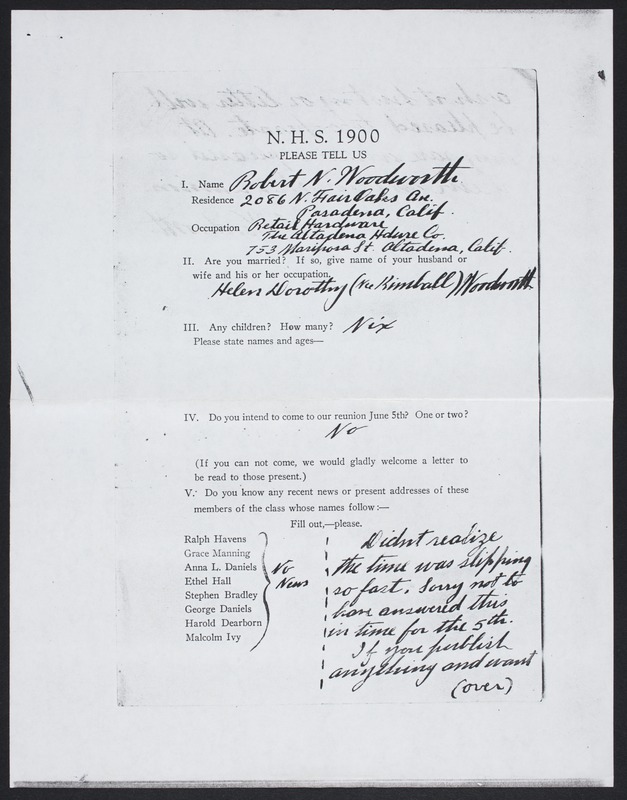 N. H. S. 1900
PLEASE TELL US
I. Name Robert N. Woodworth
Residence 2086 N. Fair Oaks Ave.
Pasadena, Calif.
Occupation Retail Hardware
The Altadena Hdwre Co.
753 Mariposa St. Altadena, Calif.
II. Are you married? If so, give name of your husband or
wife and his or her occupation.
Helen Dorothy (nee Kimball) Woodworth
III. Any children? How many? Nix
Please state names and ages—
IV. Do you intend to come to our reunion June 5th? One or two?
No
(If you can not come, we would gladly welcome a letter to
be read to those present.)
V. Do you know any recent news or present addresses of these
members of the class whose names follow:—
Fill out,—please.
Ralph Havens
Grace Manning
Anna L. Daniels
Ethel Hall
Stephen Bradley
George Daniels
Harold Dearborn
Malcolm Ivy
No
News
Didnt realize
the time was slipping
so fast. Sorry not to
have answered this
in time for the 5th.
If you publish
anything and want
(over)